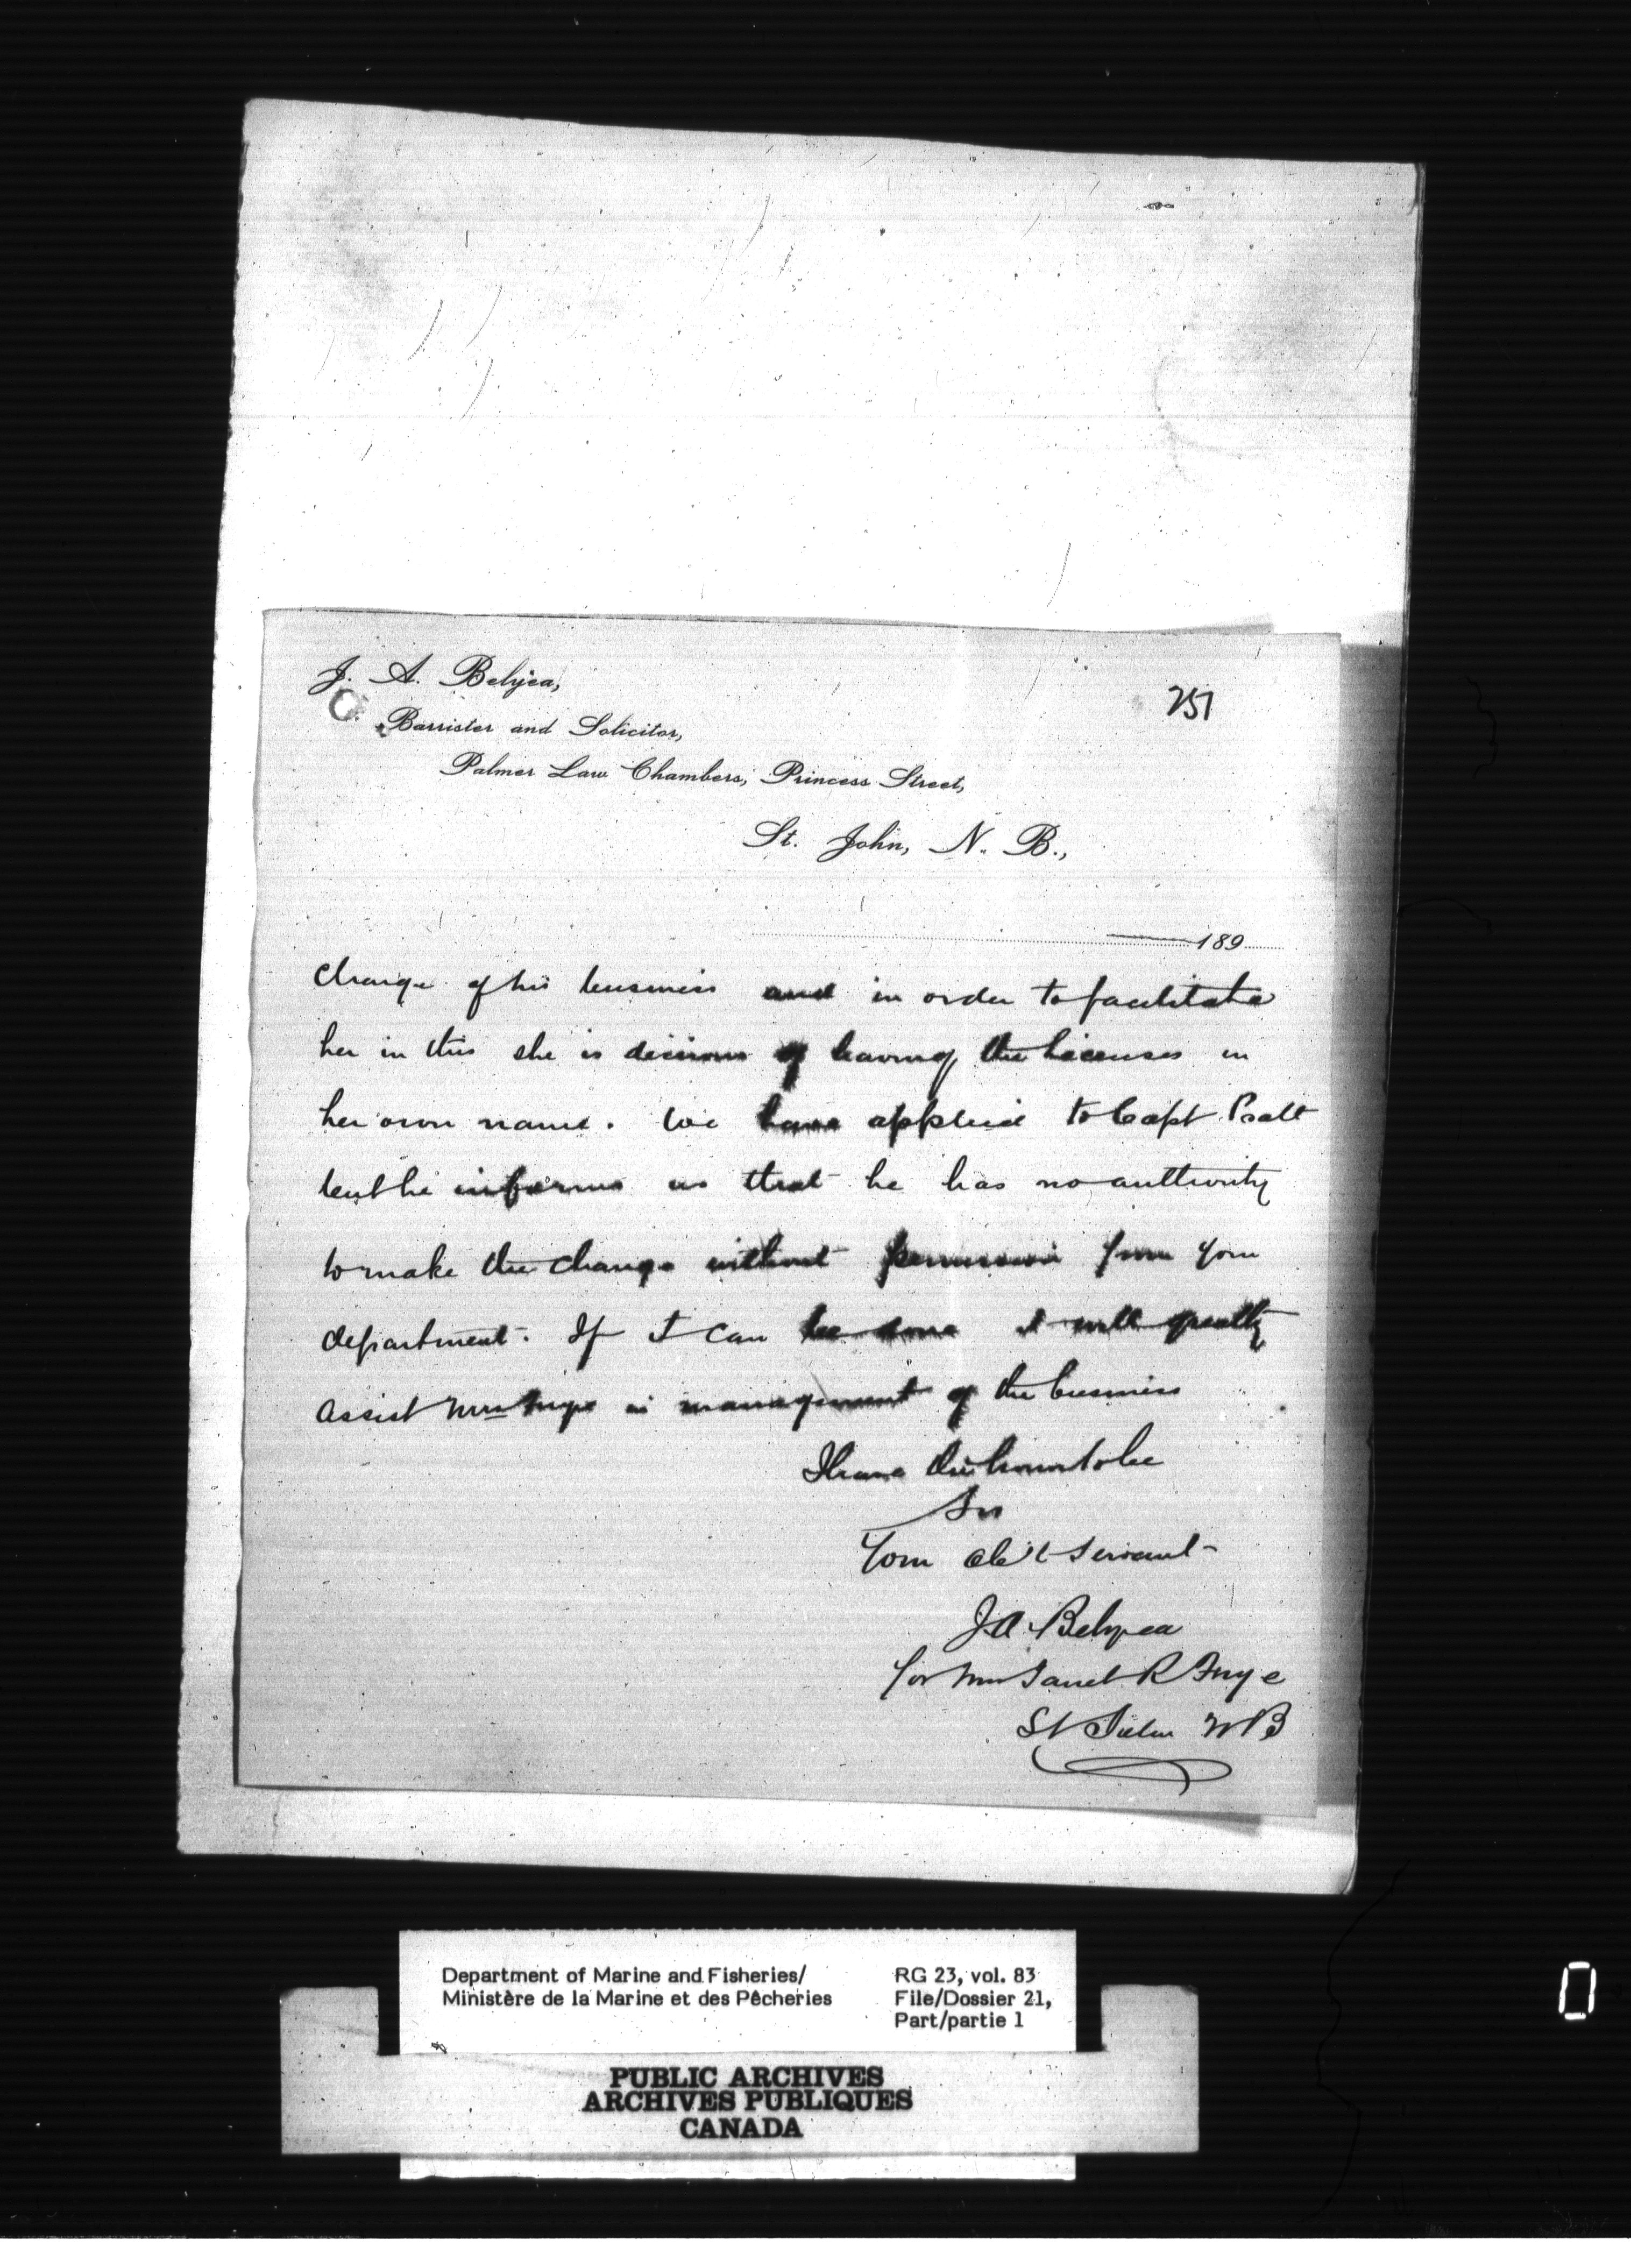 251
J. A. Belyea,
Barrister and Solicitor,
Palmer Law Chambers, Princess Street,
St. John, N. B.,
189
charge of his business and in order to facilitate
her in this she is desirous of having the licenses in
her own name. We have applied to Capt. Pratt
but he informs us that he has no authority
to make the change without permission from your
department. If it can be done it will greatly
assist Mrs Frye in management of the business
I have the honor to be
Sir
Your Ob't Servant
J.A. Belyea
for Mrs Janet R Frye
St John N B
Department of Marine and Fisheries/
Ministère de la Marine et des Pêcheries
RG 23, vol. 83
File/Dossier 21,
Part/partie 1
PUBLIC ARCHIVES
ARCHIVES PUBLIQUES
CANADA